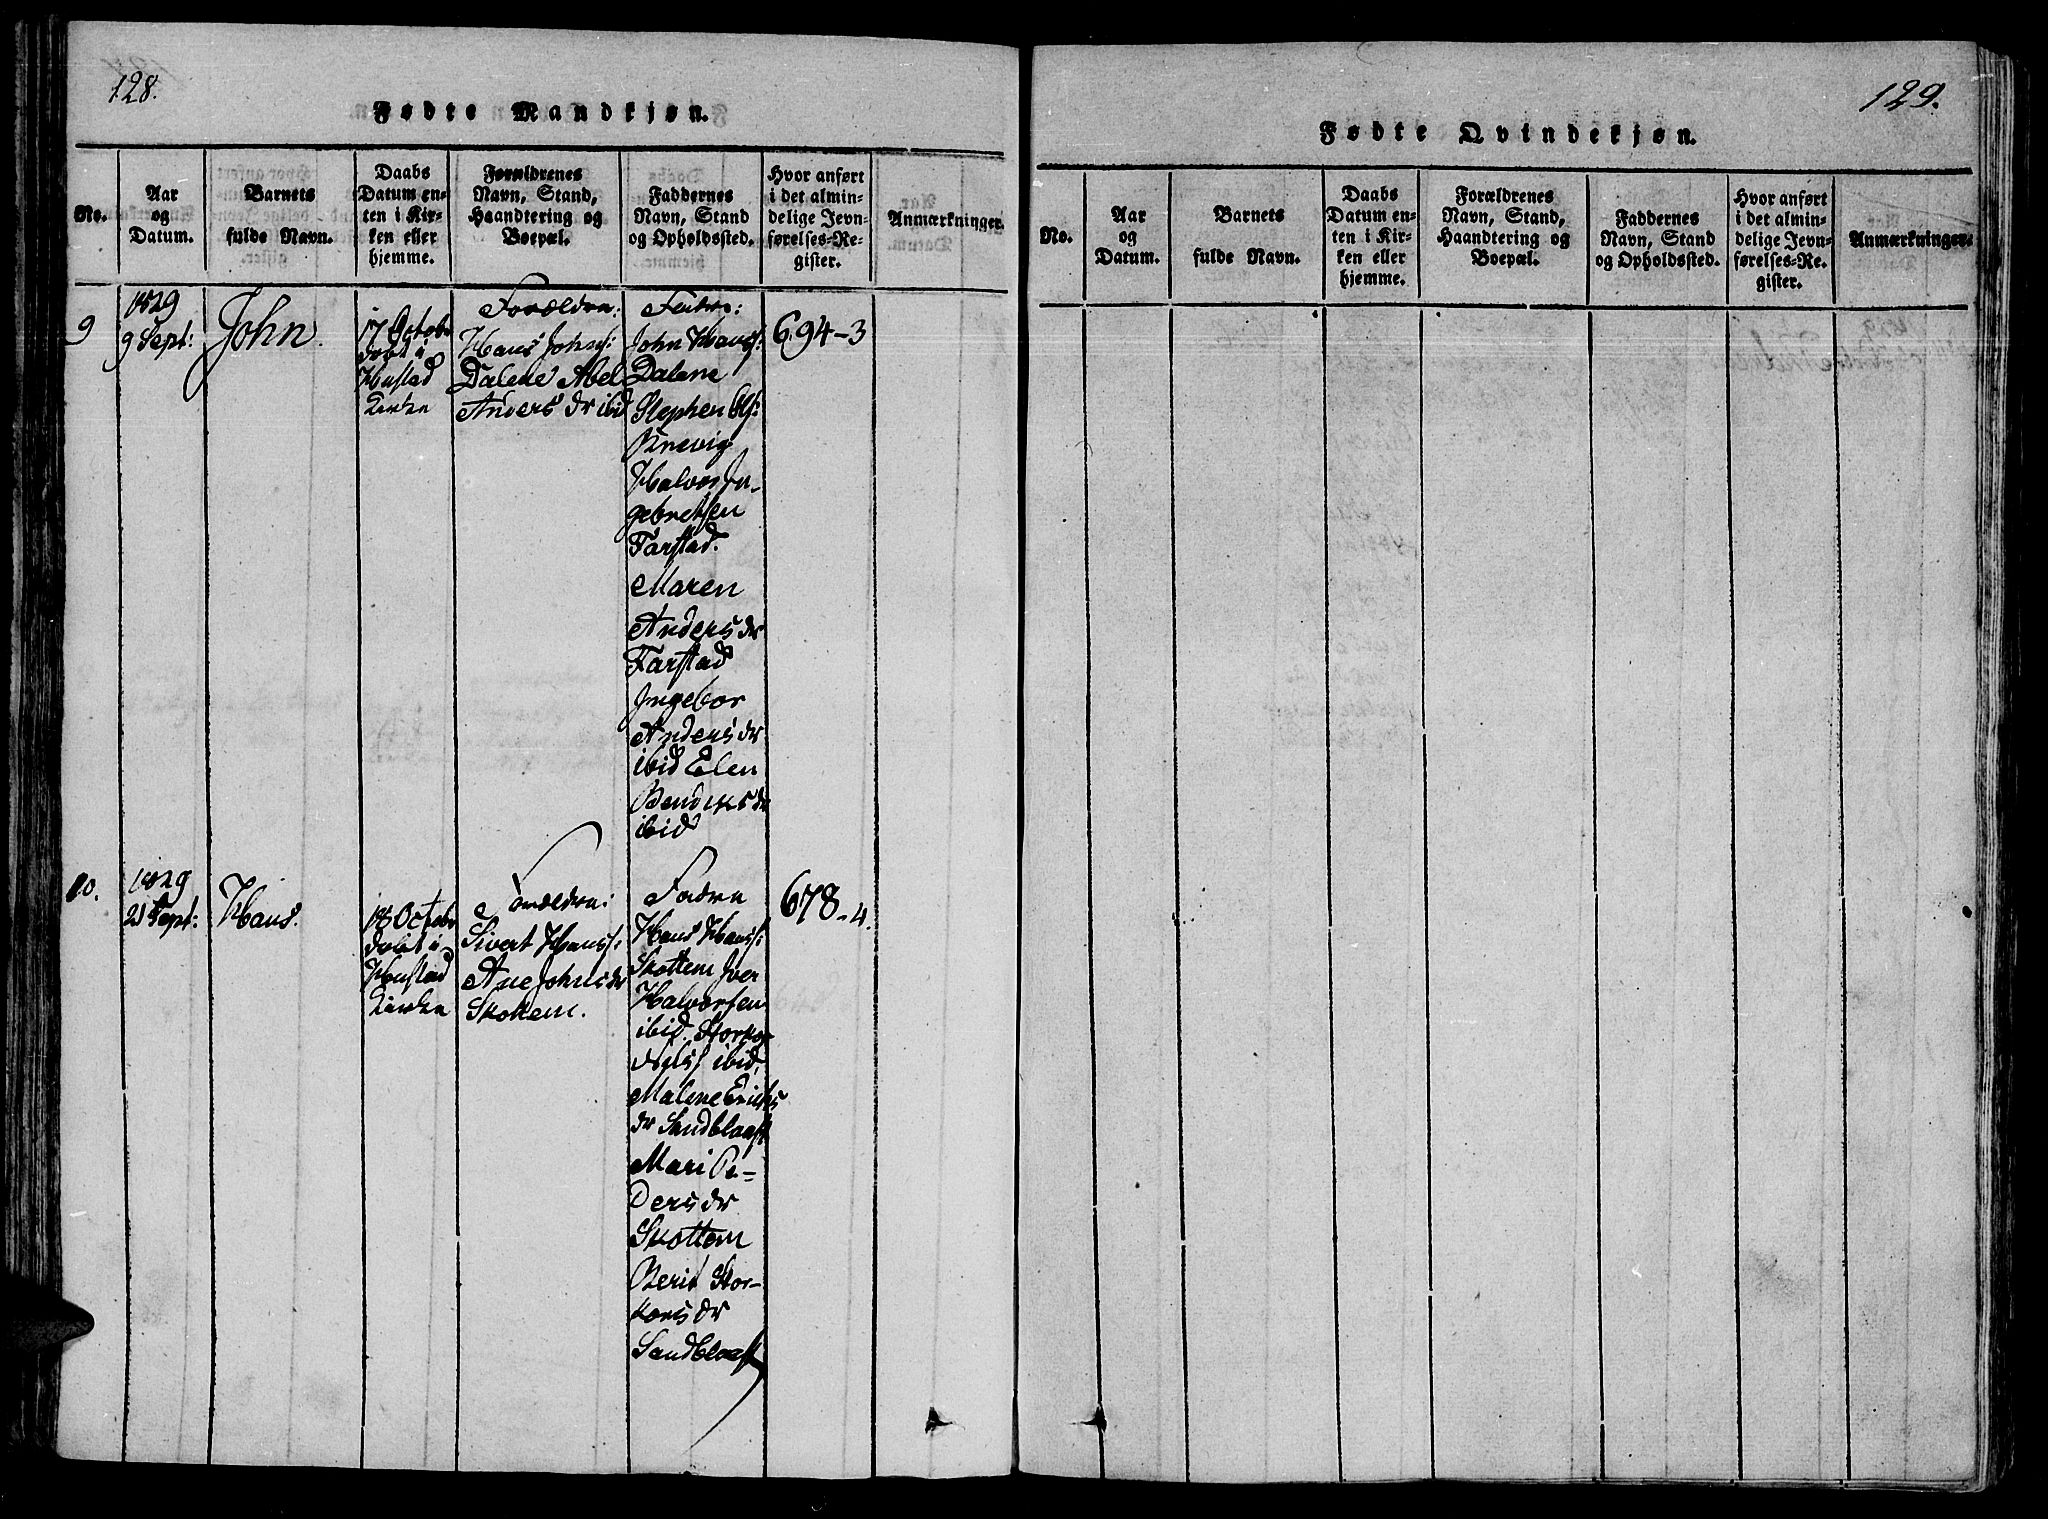 128.
Fødte Mandkjøn.
No.
Aar
og
Datum.
Barnets
fulde Navn.
Daabs
Datum en-
ten i Kir-
ken eller
hjemme.
Forældrenes
Navn, Stand,
Haandtering og
Boepæl.
Faddernes
Navn, Stand
og Opholdssted.
Hvor anført
i det almin-
delige Jevn-
førelses-Re-
gister.
Anmærkninger.
9
1829
9 Sept:
John.
17 Octobr
døbt i
Hustad
Kirke
Forældre:
Hans Johns:
Dalene Abel
Anders dr ibid
Fadre:
John Hans:
Dalene
Stephen
Brevig
Halvor In-
gebretsen
Farstad.
Maren
Anders dr
Farstad
Ingebor
Anders dr
ibid Elen
Bendixs dr
ibid
694-3
10.
1829
21 Sept:
Hans.
18 Octobr
døbt i
Hustad
Kirke
Forældre:
Sivert Hanss:
Ane Johns dr
Skottem.
Fadre
Hans Hanss:
Skottem Iver
Halvorsen
ibid. Storkor
ibid,
Malene Erichs
dr Sandblaast
Mari Pe-
ders dr
Skottem
Berit Stor-
kors dr
Sandblaast
678-4.
129.
Fødte Qvindekjøn.
No.
Aar
og
Datum.
Barnets
fulde Navn.
Daabs
Datum en-
ten i Kir-
ken eller
hjemme.
Forældrenes
Navn, Stand,
Haandtering og
Boepæl.
Faddernes
Navn, Stand
og Opholdssted.
Hvor anført
i det almin-
delige Jevn-
førelses-Re-
gister.
Anmærkninger.